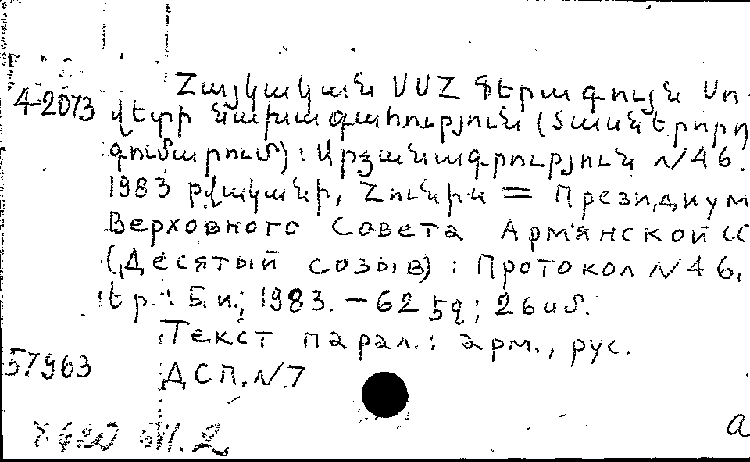 Հայկական ՍՍՀ Գերագույն Սո-
4-2073 վետի նախագահություն (Տասներորդ
գումարում): Արձանագրություն N 46.
1983 թվականի, Հունիս = Президиум
Верховного Совета Армянской СС
(Десятый созыв) : Протокол N 46,
Եր.: Б.и., 1983. – 62 էջ; 26 սմ.
Текст парал.: арм., рус.
57963 ДСП. N 7